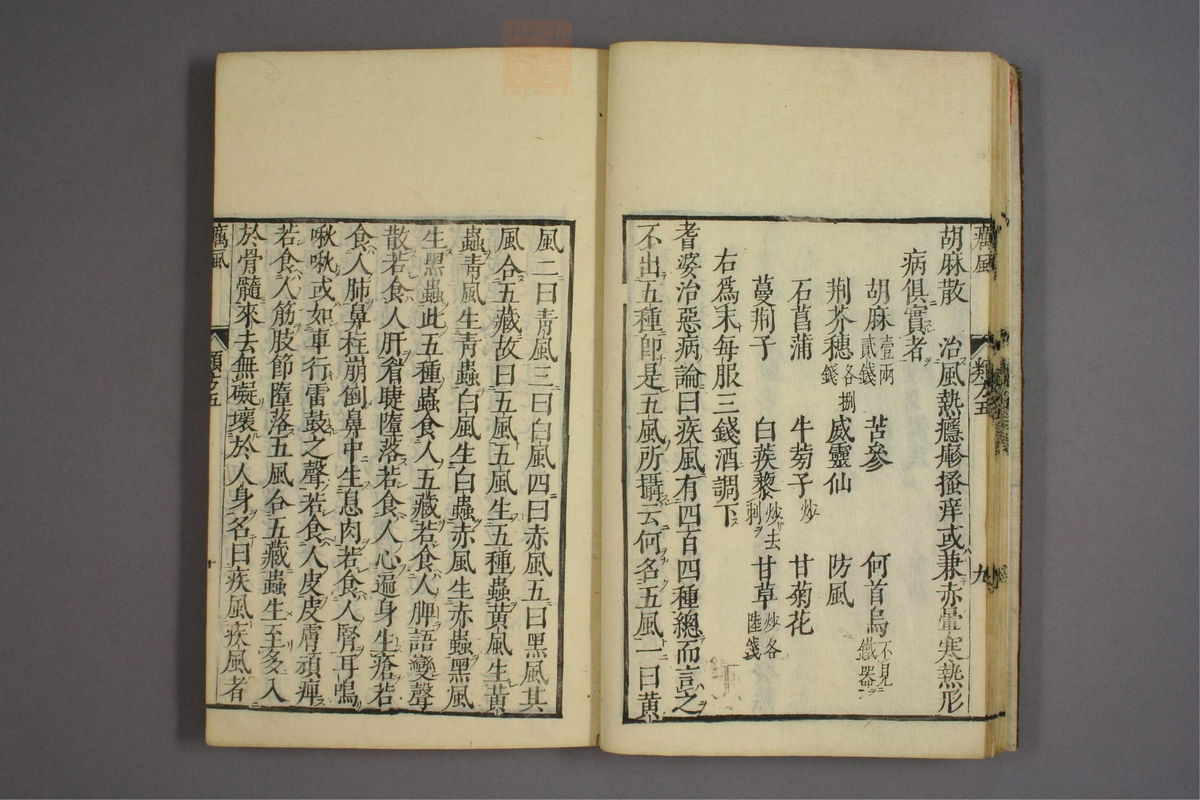 癘風
類八五
九
胡麻散 治風熱癮疹搔痒或兼赤暈寒熱形
病俱實者
胡麻壹兩貳錢 苦參 何首烏不見鐵器
荆芥穗各捌錢 威靈仙 防風
石菖蒲 牛蒡子炒 甘菊花
蔓荆子 白蒺藜炒去刺 甘草炒各陸錢
右爲末每服三錢酒調下
耆婆治惡病論曰疾風有四百四種總而言之
不出五種即是五風所攝云何名五風一曰黄
風二曰青風三曰白風四曰赤風五曰黑風其
風合五藏故曰五風五風生五種蟲黄風生黄
蟲青風生青蟲白風生白蟲赤風生赤蟲黑風
生黑蟲此五種蟲食人五藏若食人脾語變聲
散若食人肝眉睫墮落若食人心遍身生瘡若
食人肺鼻柱崩倒鼻中生息肉若食人腎耳鳴
啾啾或如車行雷鼓之聲若食人皮皮膚頑痺
若食人筋肢節墮落五風合五藏蟲生至多入
於骨髓來去無礙壞於人身名曰疾風疾風者
癘風